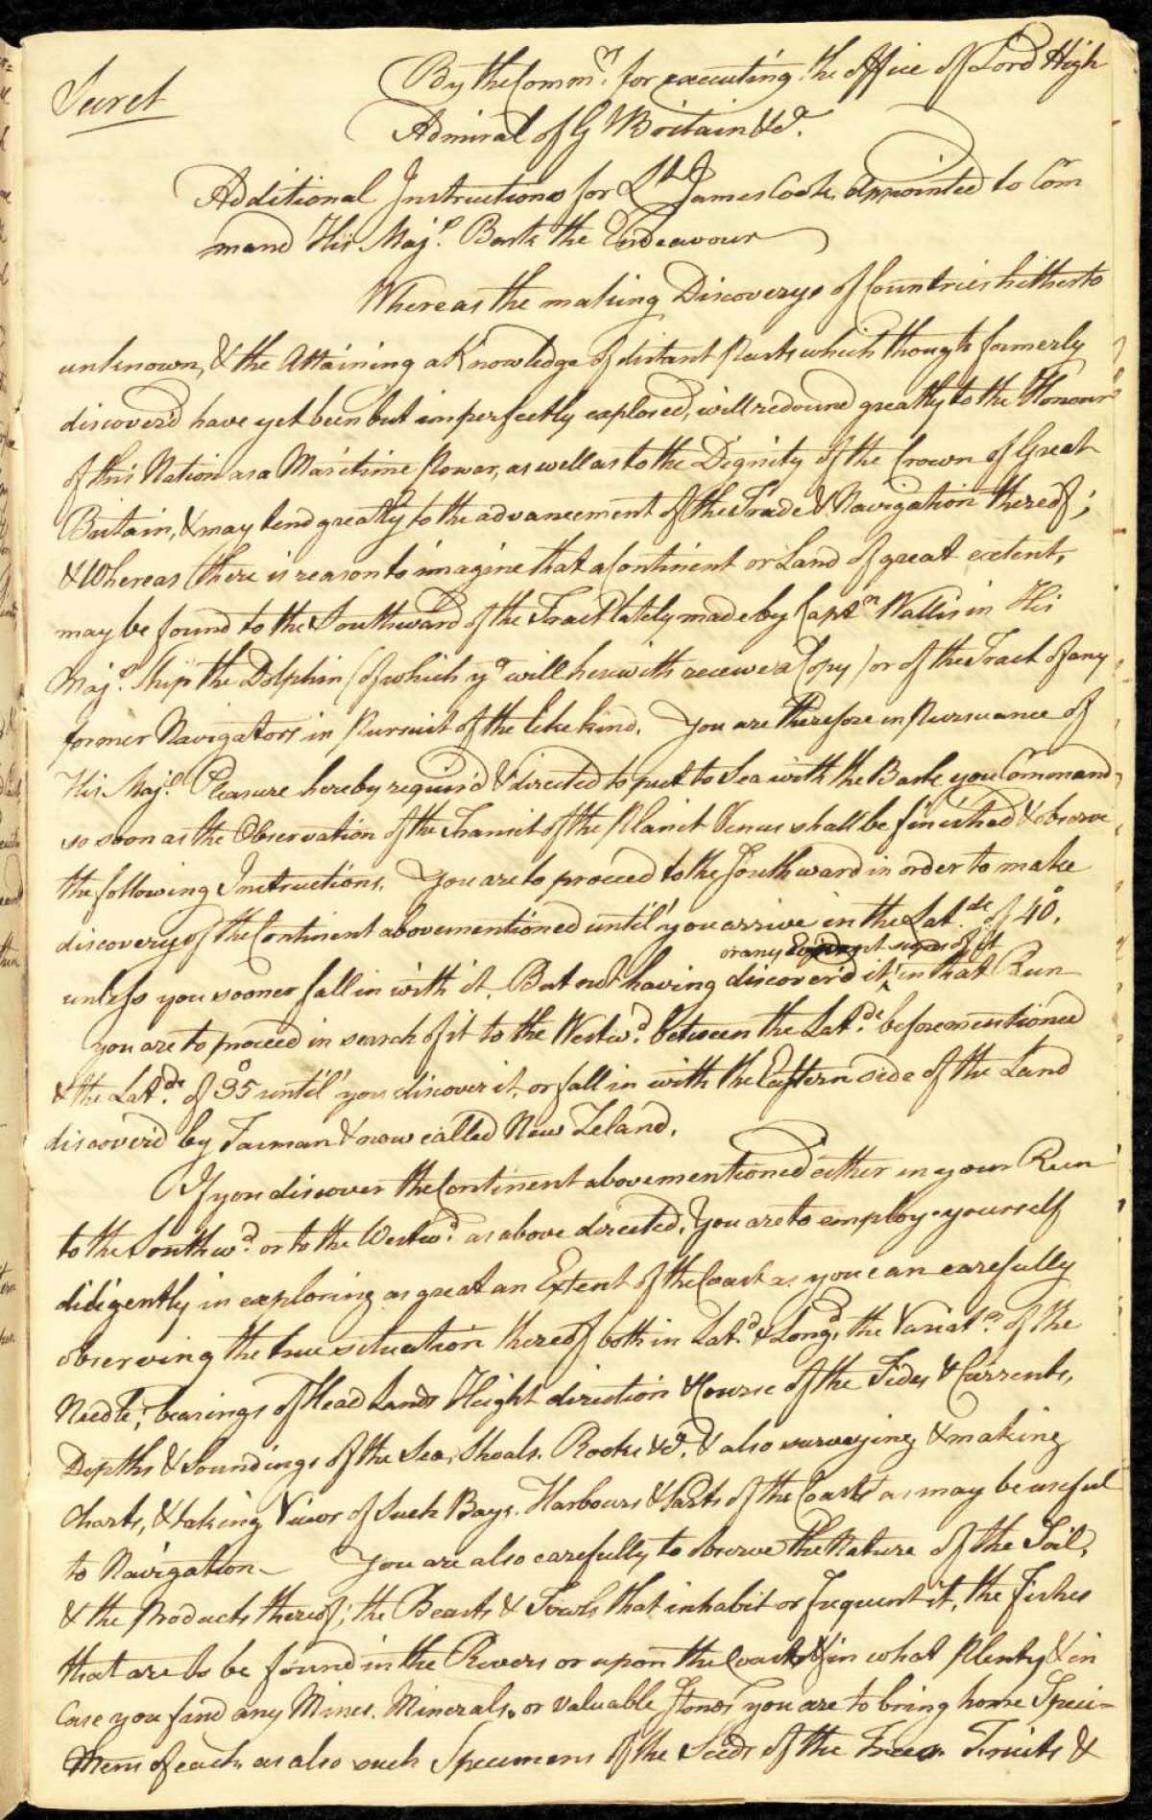 Secret
By the Comm.rs for executing the Office of Lord High
Admiral of G Britain &ca.
Additional Instructions for Lt. James Cook, Appointed to Com
mand His Maj.s Bark the Endeavour
Whereas the making Discoverys of Countries hitherto
unknown, & the Attaining a Knowledge of distant Parts which though formerly
discover'd have yet been but imperfectly explored, will redound greatly to the Honour
of this Nation as a Maritime Power, as well as to the Dignity of the Crown of Great
Britain, & may tend greatly to the advancement of the Trade & Navigation thereof;
& Whereas there is reason to imagine that a Continent or Land of great extent,
may be found to the Southward of the Tract lately made by Captn. Wallis in His
Maj.s Ship the Dolphin (of which yo. will herewith receive a Copy) or of the Tract of any
former Navigators in Pursuit of the like kind. You are therefore in Pursuance of
His Maj.s Pleasure hereby requir'd & directed to put to Sea with the Bark you Command,
so soon as the Observation of the Transit of the Planet Venus shall be finished & observe
the following Instructions. You are to proceed to the Southward in order to make
discovery of the Continent abovementioned until' you arrive in the Lat.de of 40°.
unless you sooner fall in with it. But not having discover'd it or any Evident signs of it in that Run
you are to proceed in search of it to the Westwd. between the Lat.de beforementioned
& the Lat.de of 35° until' you discover it, or fall in with the Eastern side of the Land
discover'd by Tasman & now called New Zeland.
If you discover the Continent abovementioned either in your Run
to the Southwd. or to the Westwd. as above directed, You are to employ yourself
diligently in exploring as great an Extent of the Coast as you can carefully
observing the true situation thereof both in Lat.d & Longd, the Variatn. of the
Needle; bearings of Head Lands Height direction & Course of the Tides & Currents,
Depths & Soundings of the Sea, Shoals, Rocks &ca. & also surveying & making
Charts, & taking Views of Such Bays, Harbours & Parts of the Coasts as may be useful
to Navigation. You are also carefully to observe the Nature of the Soil,
& the Products thereof; the Beasts & Fowls that inhabit or frequent it, the Fishes
that are to be found in the Rivers or upon the Coast & in what Plenty & in
Case you find any Mines, Minerals, or valuable Stones you are to bring home Speci-
mens of each, as also such Specimens of the Seeds of the Trees Fruits &